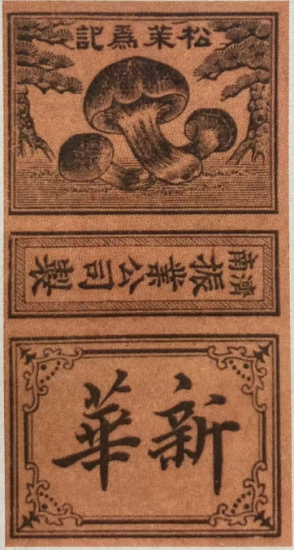 松茸爲記
濟南振業公司製
新華